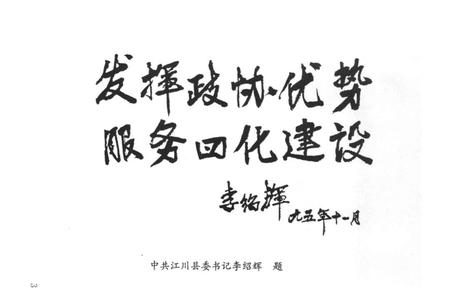 发挥政协优势
服务四化建设
李绍辉 九五年十一月
中共江川县委书记李绍辉 题